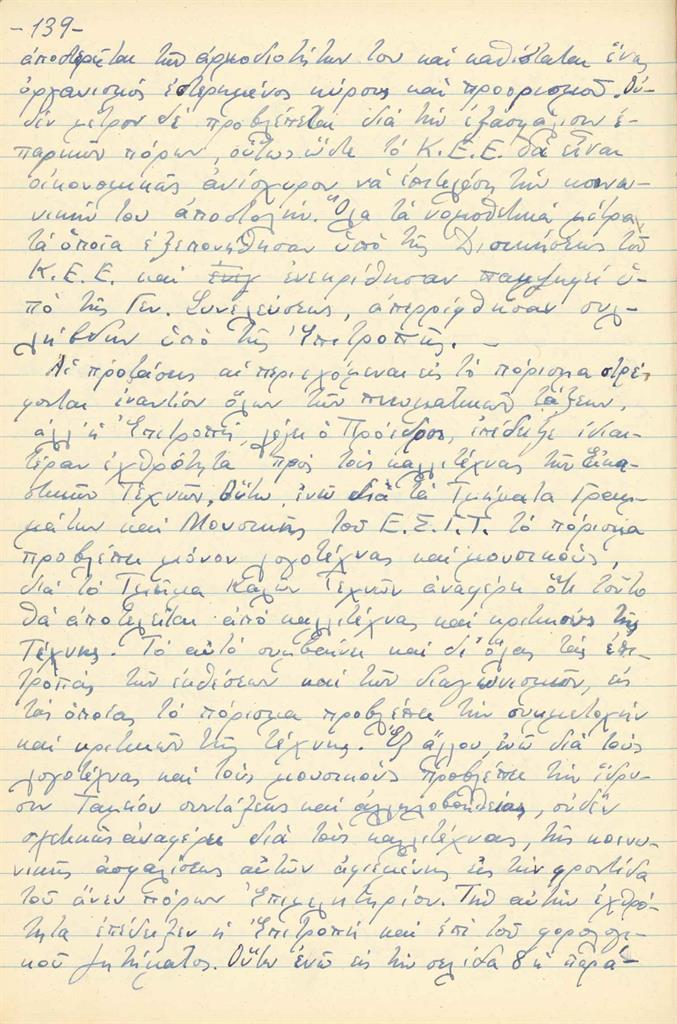 -139-
ἀποστερεῖται τῶν ἁρμοδιοτήτων του καὶ καθίσταται ἕνας
ὀργανισμὸς ἐστερημένος κύρους καὶ προορισμοῦ. Οὐ-
δὲν μέτρον δὲ προβλέπεται διὰ τὴν ἐξασφάλισιν ἐ-
παρκῶν πόρων, οὕτως ὥστε τὸ Κ.Ε.Ε. θὰ εἶναι
οἰκονομικῶς ἀνίσχυρον νὰ ἐπιτελέσῃ τὴν κοινω-
νικήν του ἀποστολήν. Ὅλα τὰ νομοθετικὰ μέτρα,
τὰ ὁποῖα ἐξεπονήθησαν ὑπὸ τῆς Διοικήσεως τοῦ
Κ.Ε.Ε. καὶ ἐνεκρίθησαν παμψηφεὶ ὑ-
πὸ τῆς Γεν. Συνελεύσεως, ἀπερρίφθησαν συλ-
λήβδην ὑπὸ τῆς Ἐπιτροπῆς. —
Αἱ προτάσεις αἱ περιεχόμεναι εἰς τὸ πόρισμα στρέ-
φονται ἐναντίον ὅλων τῶν πνευματικῶν τάξεων,
ἀλλ' ἡ Ἐπιτροπή, λέγει ὁ Πρόεδρος, ἐπέδειξε ἰδιαι-
τέραν ἐχθρότητα πρὸς τοὺς καλλιτέχνας τῶν Εἰκα-
στικῶν Τεχνῶν. Οὕτω, ἐνῶ διὰ τὰ Τμήματα Γραμ-
μάτων καὶ Μουσικῆς τοῦ Ε.Σ.Γ.Τ. τὸ πόρισμα
προβλέπει μόνον λογοτέχνας καὶ μουσικούς,
διὰ τὸ Τμῆμα Καλῶν Τεχνῶν ἀναφέρει ὅτι τοῦτο
θὰ ἀποτελεῖται ἀπὸ καλλιτέχνας καὶ κριτικοὺς τῆς
Τέχνης. Τὸ αὐτὸ συμβαίνει καὶ δι' ὅλας τὰς ἐπι-
τροπὰς τῶν ἐκθέσεων καὶ τῶν διαγωνισμῶν, εἰς
τὰς ὁποίας τὸ πόρισμα προβλέπει τὴν συμμετοχὴν
καὶ κριτικῶν τῆς τέχνης. Ἐξ ἄλλου, ἐνῶ διὰ τοὺς
λογοτέχνας καὶ τοὺς μουσικοὺς προβλέπει τὴν ἵδρυ-
σιν Ταμείου συντάξεως καὶ ἀλληλοβοηθείας, οὐδὲν
σχετικῶς ἀναφέρει διὰ τοὺς καλλιτέχνας, τῆς κοινω-
νικῆς ἀσφαλίσεως αὐτῶν ἀφιεμένης εἰς τὴν φροντίδα
τοῦ ἄνευ πόρων Ἐπιμελητηρίου. Τὴν αὐτὴν ἐχθρό-
τητα ἐπέδειξεν ἡ Ἐπιτροπὴ καὶ ἐπὶ τοῦ φορολογι-
κοῦ ζητήματος. Οὕτω ἐνῶ εἰς τὴν σελίδα 8 ἡ παρά-